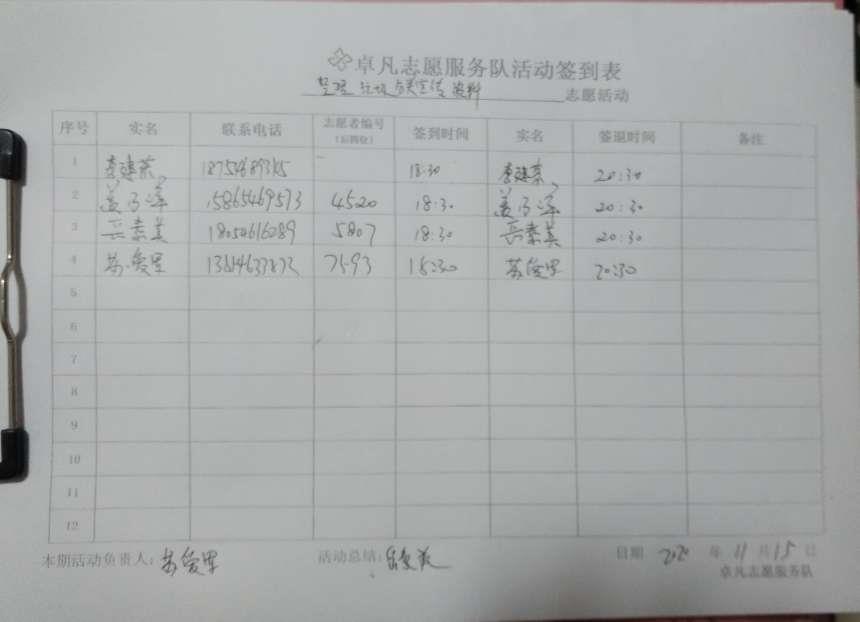 卓凡志愿服务队活动签到表
整理垃圾分类宣传资料 志愿活动
序号 实名 联系电话 志愿者编号(后四位) 签到时间 实名 签退时间 备注
1 李建荣 18:30 李建荣 20:30
2 15865469573 4520 18:30 20:30
3 岳素美 18054616289 5807 18:30 岳素美 20:30
4 苏俊里 7593 18:30 苏俊里 20:30
5
6
7
8
9
10
11
12
本期活动负责人: 苏俊里 活动总结: 日期 2020 年 11 月 15 日
卓凡志愿服务队